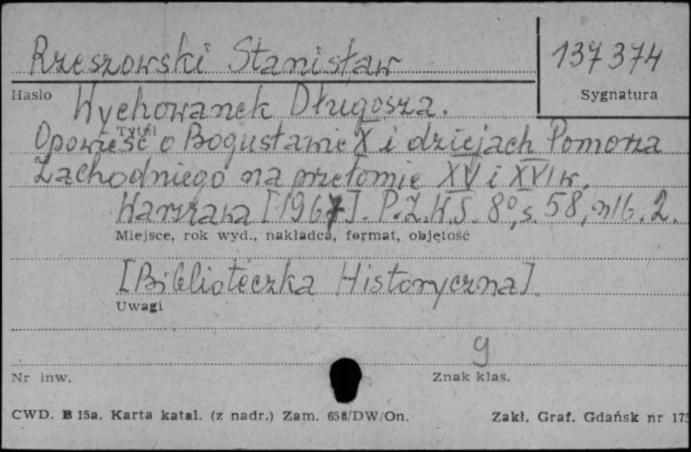 Rzeszowski Stanisław
137 374
Hasło
Sygnatura
Wychowanek Długosza.
Tytuł
Opowieść o Bogusławie X i dziejach Pomorza
Zachodniego na przełomie XV i XVI w.
Warszawa [1967]. P.Z.W.S. 8°, s. 58, nlb. 2.
Miejsce, rok wyd., nakładca, format, objętość
[Biblioteczka Historyczna].
Uwagi
g
Nr inw.
Znak klas.
CWD. B 15a. Karta katal. (z nadr.) Zam. 658/DW/On.
Zakł. Graf. Gdańsk nr 175